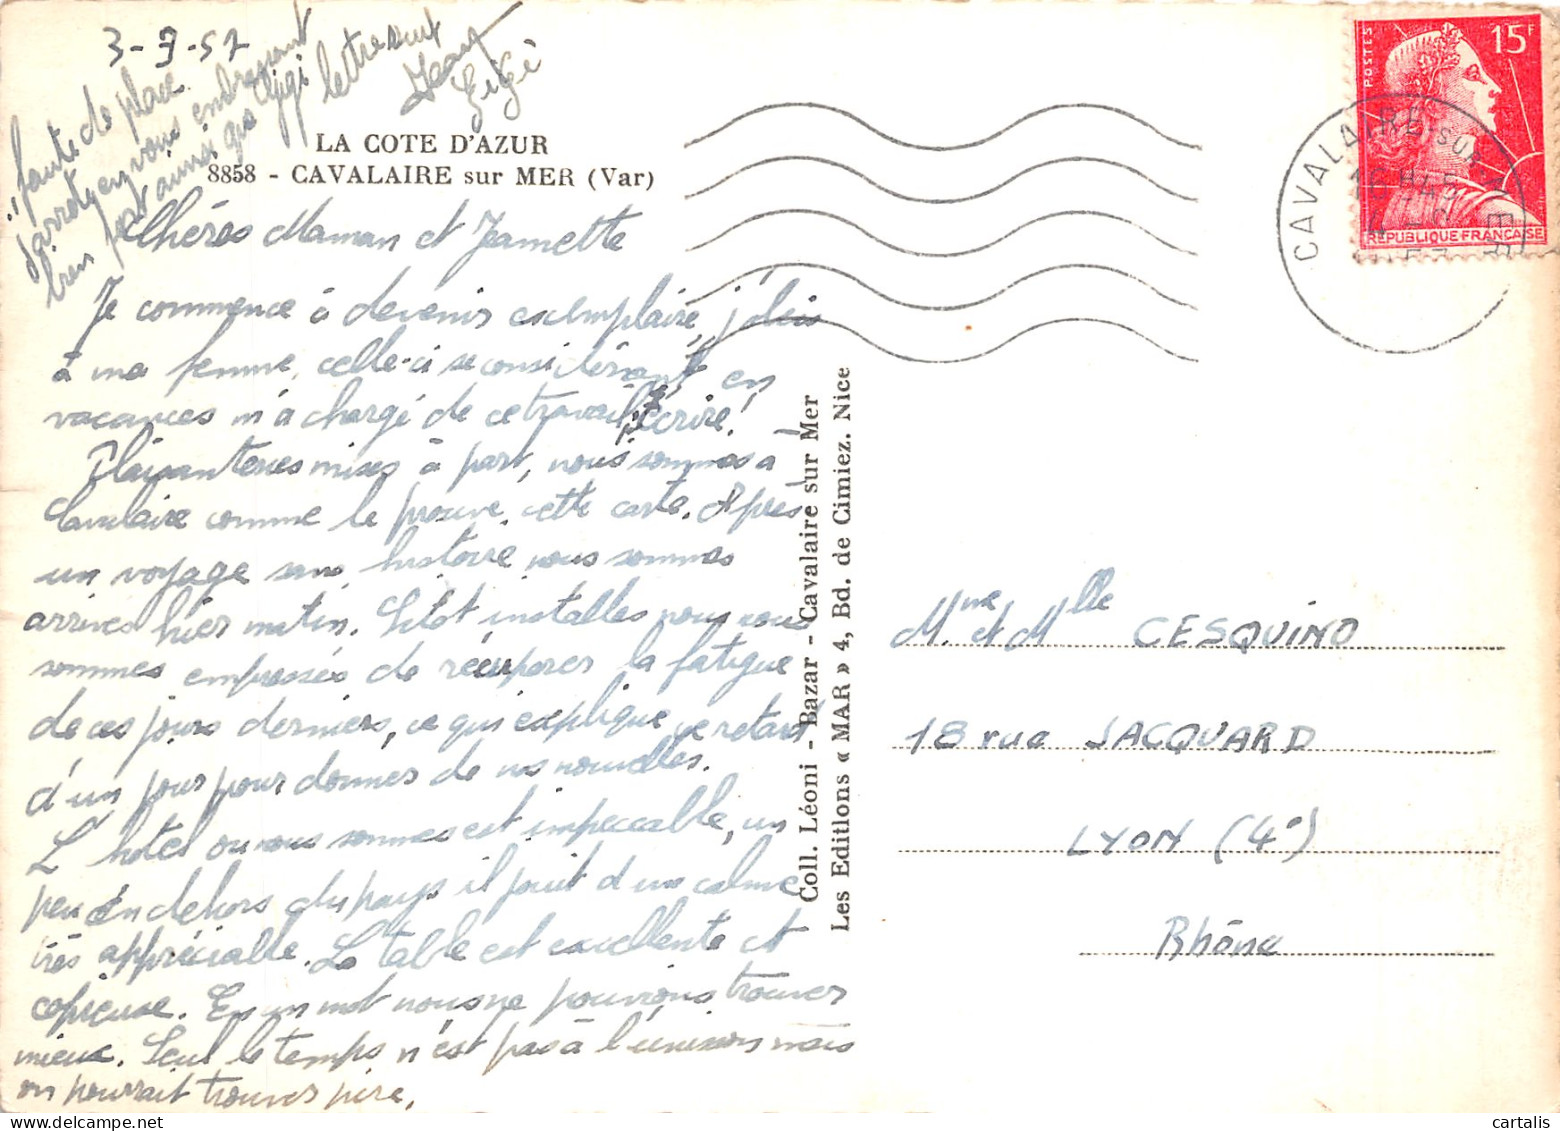 3-9-57
"faute de place
j'arrete en vous embrassant
bien fort ainsi que Gigi lettre suit
Jean
Gigi
LA COTE D'AZUR
8858 - CAVALAIRE sur MER (Var)
Chères Maman et Jeannette
Je commence à devenir exemplaire, j'obéis
à ma femme, celle-ci se considérant en
vacances m'a chargé de ce travail : écrire!
Plaisanteries mises à part, nous sommes à
Cavalaire comme le prouve cette carte. Après
un voyage sans histoire nous sommes
arrivés hier matin. Sitot installés nous nous
sommes empressés de récupérer la fatigue
de ces jours derniers, ce qui explique ce retard
d'un jour pour donner de nos nouvelles.
L'hotel ou nous sommes est impeccable, un
peu en dehors du pays il jouit d'un calme
très appréciable. La table est excellente et
copieuse. En un mot nous ne pouvions trouver
mieux. Seul le temps n'est pas à l'unisson mais
on pourrait trouver pire.
Coll. Léoni - Bazar - Cavalaire sur Mer
Les Editions « MAR » 4, Bd. de Cimiez. Nice
POSTES
15F
REPUBLIQUE FRANÇAISE
CAVALAIRE-SUR-MER
16H45
4-9
57
Mme et Mlle CESQUINO
18 rue JACQUARD
LYON (4°)
Rhône
cartalis